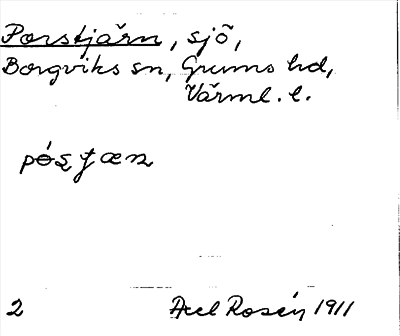 Porstjärn, sjö,
Borgviks sn, Grums hd,
Värml. l.
2 Axel Rosén 1911